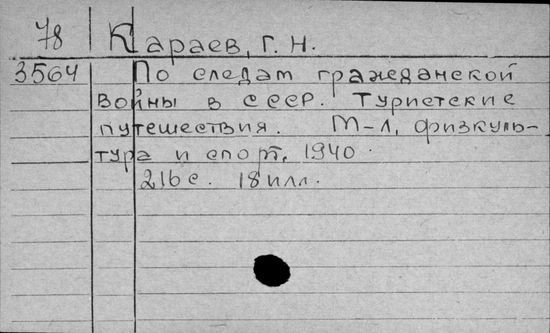 78 Караев, Г. Н.
3564 По следам гражданской
войны в СССР. Туристские
путешествия. М-Л, физкуль-
тура и спорт, 1940.
216 с. 18 илл.